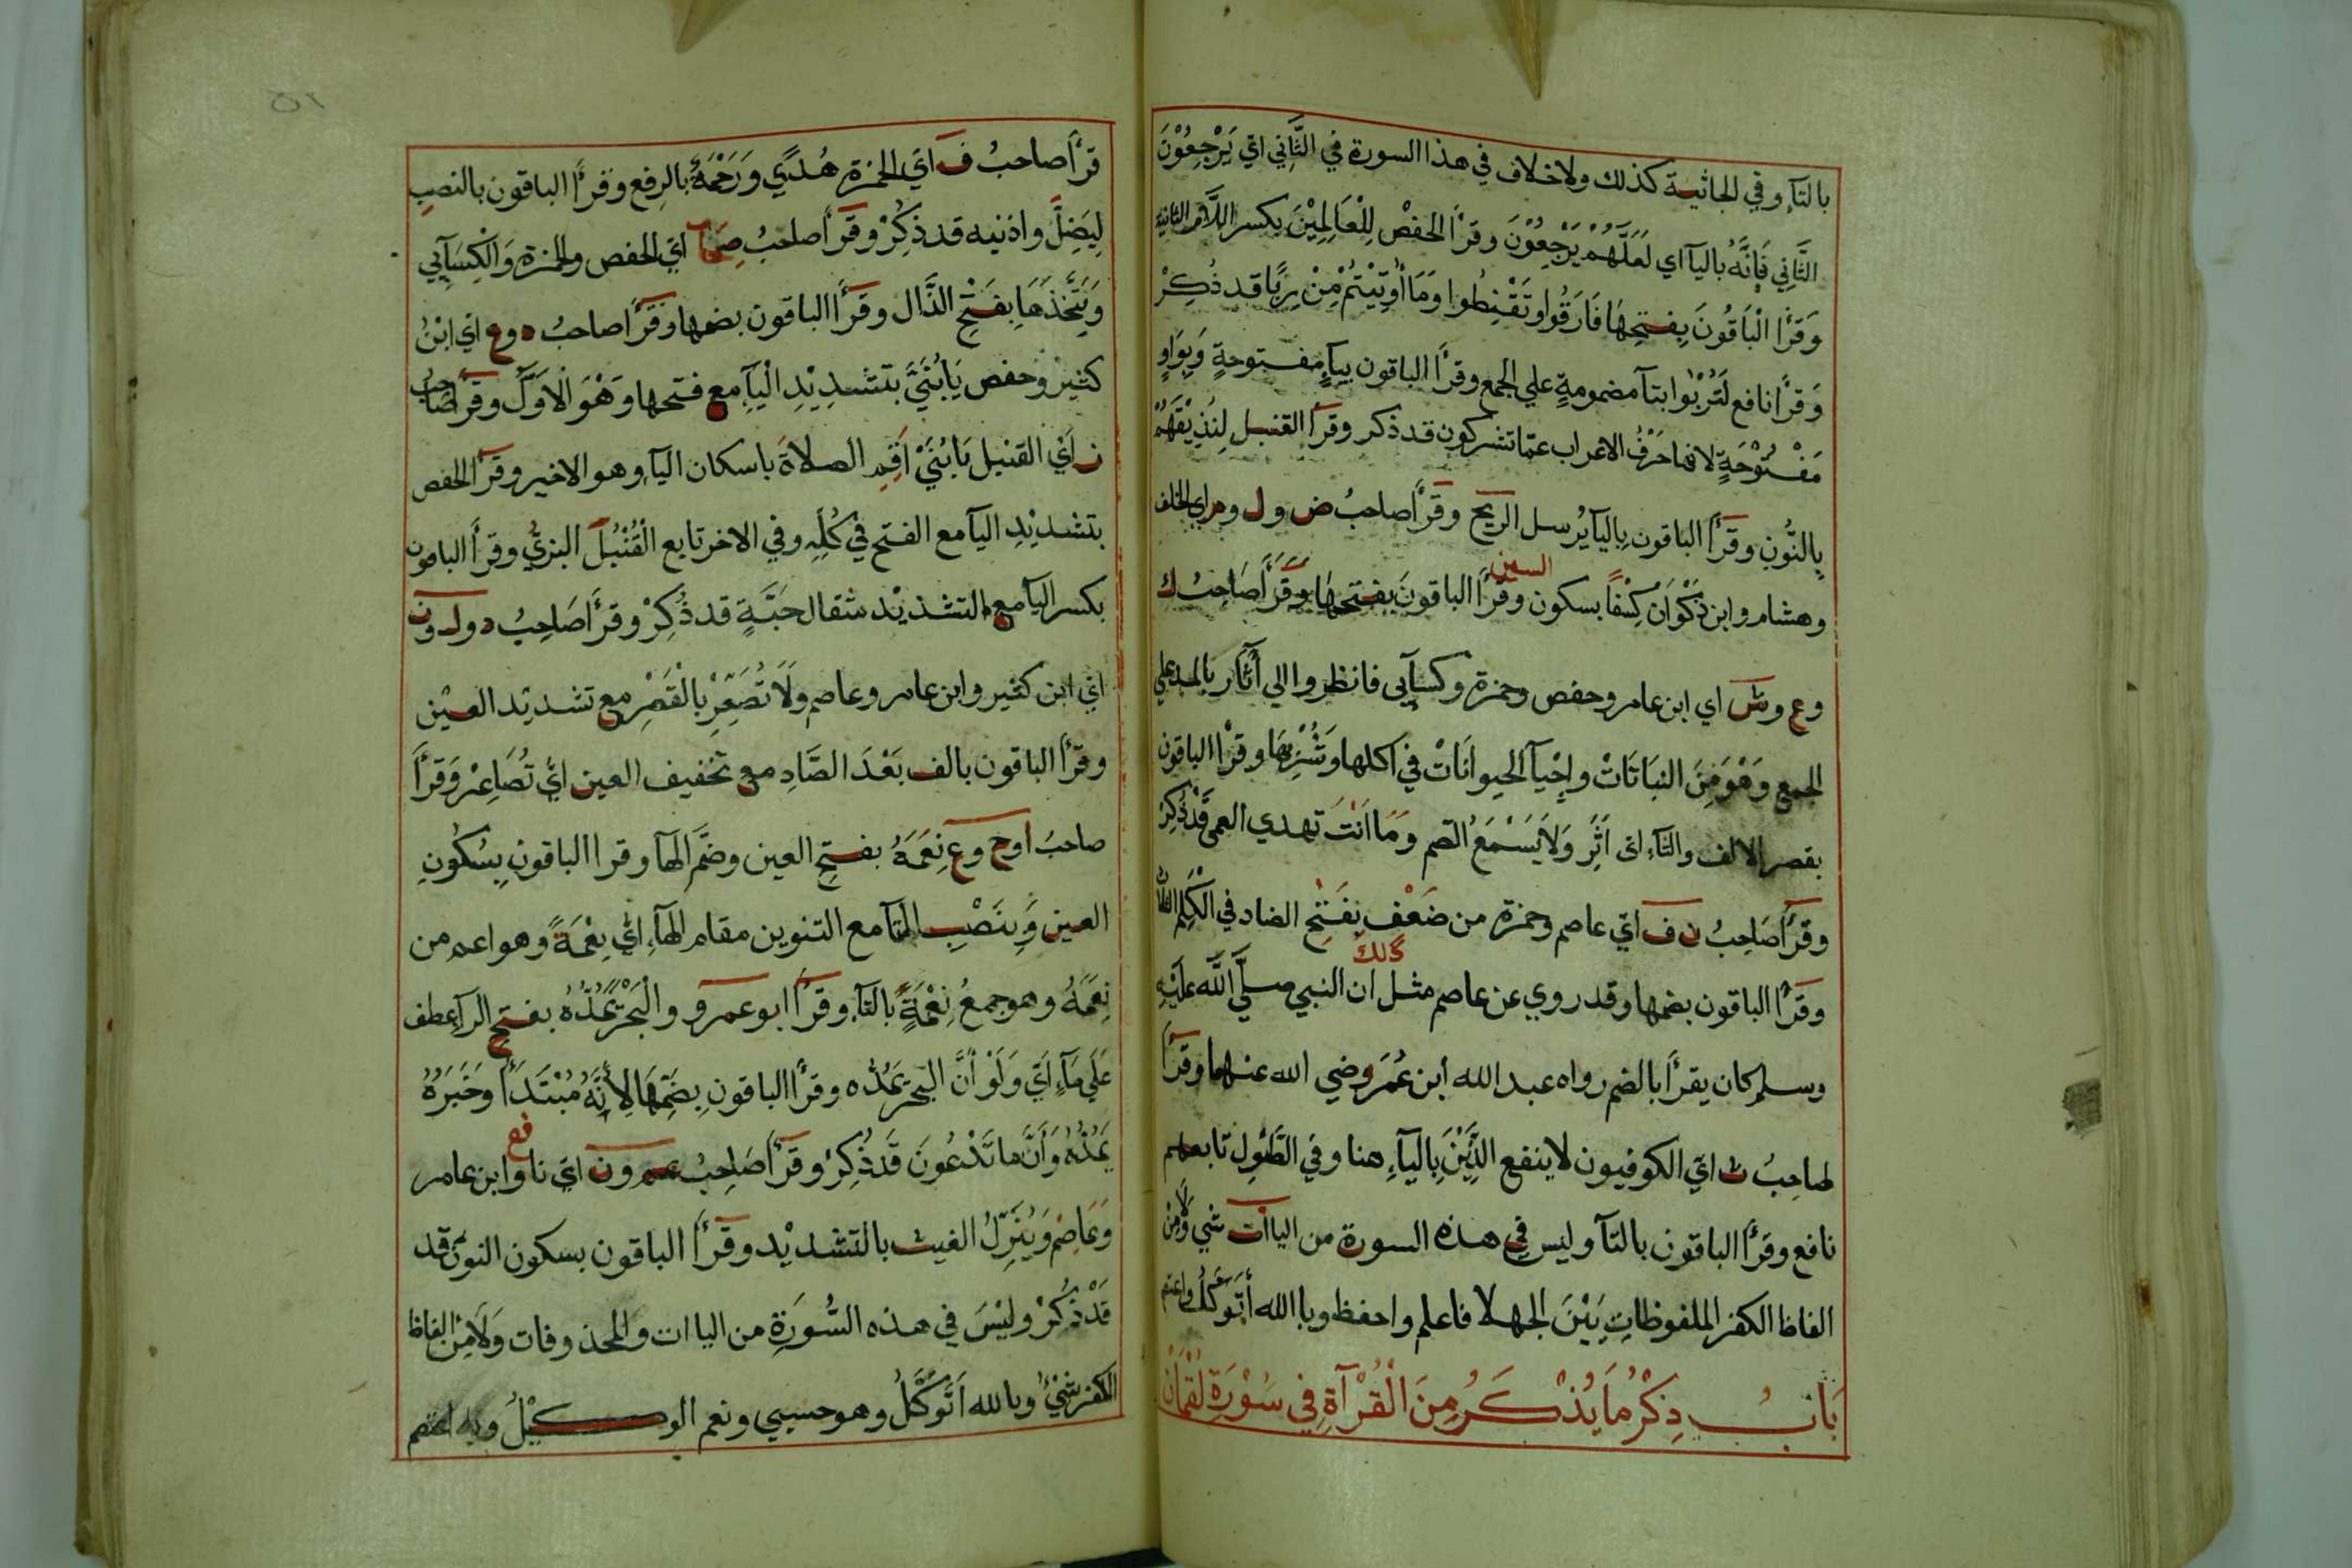 بالتآء وفي الجاثية كذلك ولاخلاف في هذا السورة في الثَّانِي اي يَرْجِعُوْنَ
الثَّانِي فَإِنَّهُ باليآ اي لَعَلَّهُمْ يَرْجِعُوْنَ وقرأ الحفْص لِلْعَالِمِيْنَ بكسر اللَّام الثانية
وَقَرَأَ الْبَاقُونَ بِفتحِهَا فَارَقُوا وتَقْنِطُوا وَمَا أُوتِيْتُمْ مِّنْ رِبًا قد ذُكِرْ
وَقرأ نافع لَتُرْبُوا بتآ مضمومةٍ علي الجمع وقرأ الباقون بيآءٍ مفتوحةٍ وَبِوَاوٍ
مَفْتُوْحَةٍ لانها حَرْفُ الاعراب عمّا تشركون قد ذكر وقرأ القنبل لِنُذِيْقَهُمْ
بِالنُّونِ وقَرَأَ الباقون بِاليآ يُرسل الريح وقَرَأَ صاحبُ ض ول وم اي الخلف
وهشام وابن ذَكْوَانْ كِسْفًا بسكون السين وقَرَأَ الباقونَ بفتحِهَا وَقَرَأَ صَاحِبُ ك
وع وش اي ابن عامر وحفص وحمزة وكسآيى فانظروا الي أٰثَار بالمد علي
الجمع وَهْوَ مِنَ النبَاتَاتْ وإِحْيآ الحيوانَاتْ في اكلها وَشُرْبِهَا وقرأ الباقون
بقصر الالف والثآء اى أَثَرِ وَلَا يَسْمَعُ الصم وَمَا اَنْتَ تهدي العمى قَدْ ذُكِرْ
وقَرَأَ صَاحِبُ ن ف اي عاصم وحمزة من ضَعْف بِفَتْحِ الضاد في الْكَلِمِ الثلاث
وقَرَأَ الباقون بضمها وقد روي عن عاصم مثل ذالك ان النبي صلّي اللّه عَلَيْهِ
وسلم كان يقرأ بالضم رواه عبد الله ابن عُمَر رضي الله عنهما وقرأ
صاحِبُ ث اي الكوفيون لاينفع الذِّيْنَ بِاليآءِ هنا وفي الطَّوْلِ تابعهم
نافع وقرأ الباقون بالتآ وليس في هذه السورة من الياآت شي ولا من
الفاظ الكفر الملفوظاتِ بَيْنَ الجهلا فاعلم واحفظ وبا الله أَتَوَكَّلُ واعتم
بَابُ ذِكْرُ مَا يُذْكَرُ مِنَ الْقُرْآةِ فِي سُوْرَةِ لُقْمَانْ
قرأ صاحبُ ف اي الحمزة هُدًي وَرَحْمَةٌ بالرفع وقرأ الباقون بالنصبِ
لِيَضِلَّ واذنيه قد ذُكِرْ وقَرَأَ صاحبُ صِحَاب اي الحفص والحمزة وَالْكِسَآيي
وَيَتَّخِذَهَا بِفَتْحِ الذَّال وقَرَأَ الباقون بضمها وقَرَأَ صاحبُ د وع اي ابْنُ
كثير وحفص يَابُنَيَّ بتشدِيْدِ الْيآءِ مع فتحها وَهْوَ الْاَوَّلُ وقرأ صَاحِبُ
ز اي القنبل يَابُنَيْ اَقِمِ الصلاةَ باسكان اليآء وهو الاخير وقرأ الحفص
بتشديْدِ اليآ مع الفتح في كُلِّهِ وفي الاخر تابع الْقُنْبُلَ البزيُّ وقرأ الباقون
بكسر اليآ مع التشديْد مثقال حَبَّةٍ قد ذُكِرْ وقرأ صَاحِبُ د وك ون
اي ابن كثير وابن عامر وعاصم وَلَا تُصَعِّرْ بالْقَصْرِ مع تشديْد العيْنِ
وقرأ الباقون بالف بَعْدَ الصَّادِ مع تخفيف العين اي تُصَاعِرْ وَقَرَأَ
صاحبُ ا وح وع نِعَمَهُ بفتح العين وضَمَّ الهآ وقرا الباقون بِسُكُونِ
العين وَبِنَصْبِ التآ مع التنوين مقام الهآءِ اي نِعْمَةً وهو اعم من
نِعَمَهُ وهو جمعُ نِعْمَةٍ بالتآءِ وقَرَأَ ابو عمرو والْبَحْرَ يَمُدُّهُ بفتح الرآ عطف
عَلَي مَآءِ اَيْ وَلَوْ أَنَّ الْبَحْرَ يَمُدُّه وقرأ الباقون بِضَمِّهَا لِأَنَّهُ مُبْتَدَأٌ وَخَبَرُهُ
يَمُدُّهُ وَأَنَّ ما تَدْعُونَ قَدْ ذُكِرْ وقَرَأَ صَاحِبُ عم ون اي نافع وابن عامر
وَعَاصِم وَيُنَزِّلُ الغيث بالتشديْد وقَرَأَ الباقون بسكون النون قد
قَدْ ذُكِرْ وليْسَ في هذه السُّوْرَةِ من الياات والمحذوفات وَلَا مِنْ الفاظ
الكفر شَيْئٌ وبالله اَتَوَكَّلُ وهو حسبي ونعم الوكيْلُ وبه اعتصم